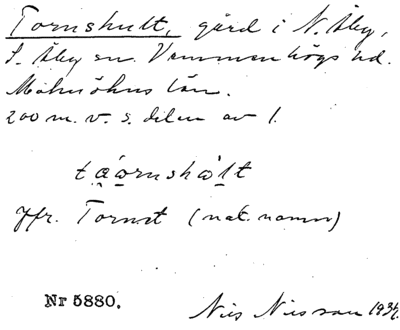 Tornshult, gård i N. Åby,
S. Åby sn. Vemmenhögs hd.
Malmöhus län.
200 m. v. s. delen av 1.
Jfr. Tornst (nat. namn)
Nr 5880. Nils Nilsson 1934.